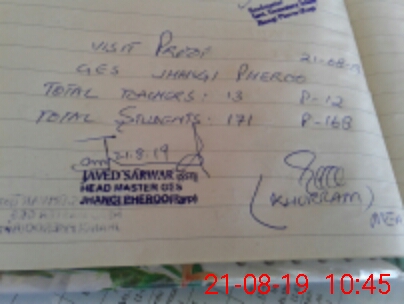 VISIT PROOF
21-08-19
GES JHANGI PHEROO
TOTAL TEACHERS: 13 P-12
TOTAL STUDENTS: 171 P-168
21.8.19
JAVED SARWAR
HEAD MASTER GES
JHANGI PHEROO
(KHURRAM)
MEA
21-08-19 10:45